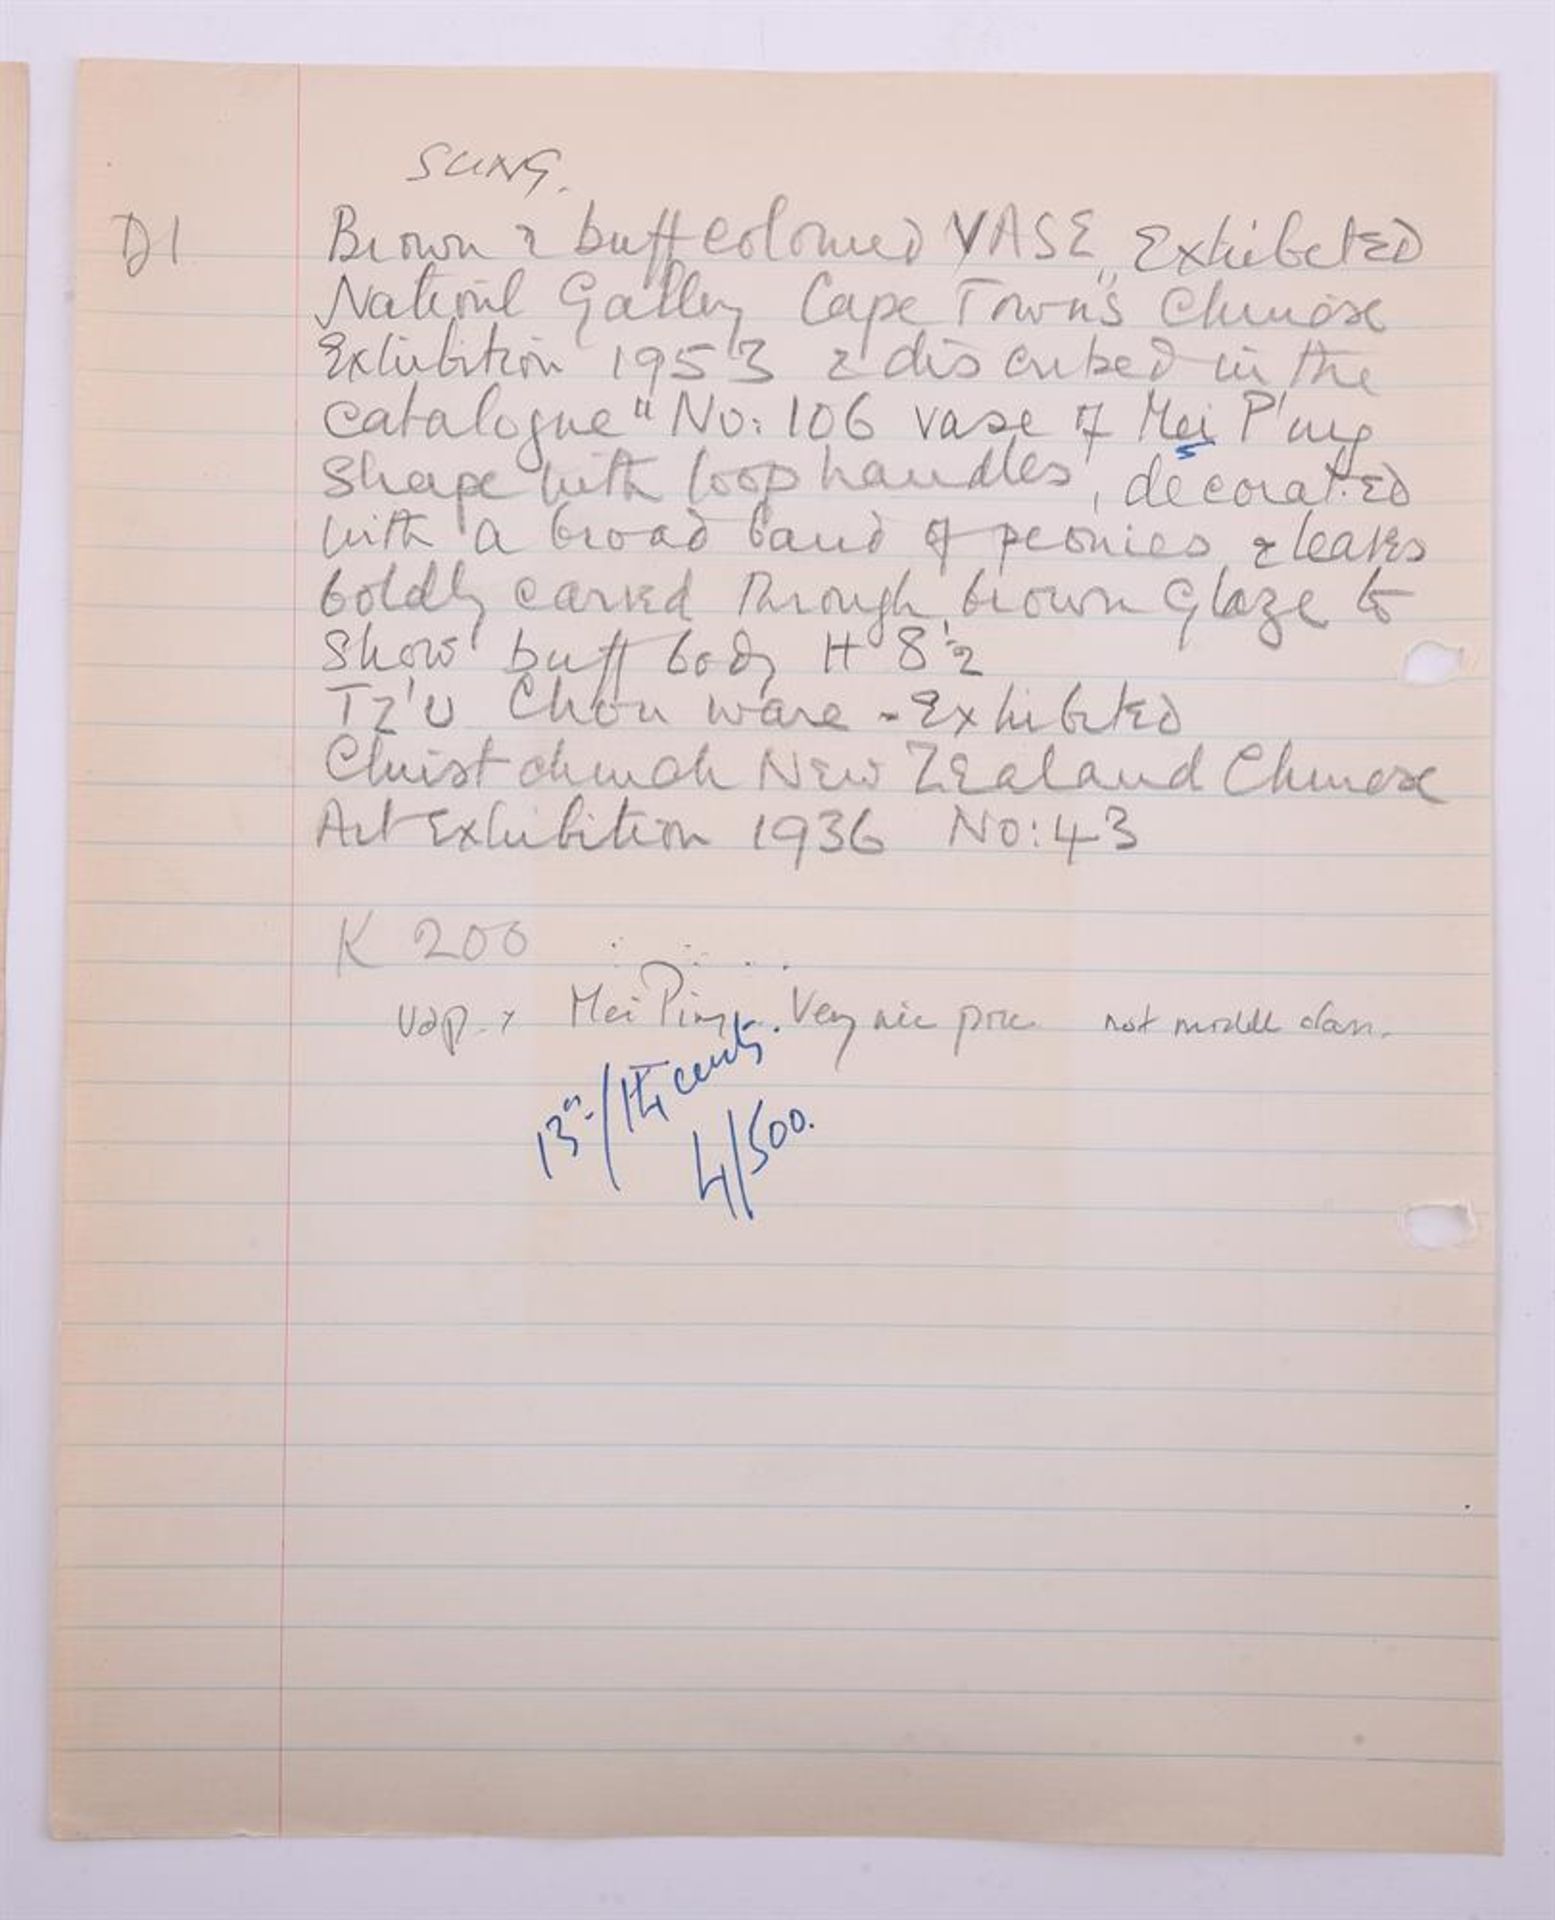 SUNG.
D1 Brown & buff coloured VASE, Exhibited
National Gallery Cape Town's Chinese
Exhibition 1953 & discribed in the
catalogue " No: 106 vase of Mei P'ing
shape with loop handles, decorated
with a broad band of peonies & leaves
boldly carved through brown glaze to
show buff body H 8½
TZ'U Chou ware - Exhibited
Christchurch New Zealand Chinese
Art Exhibition 1936 No: 43
K 200
Mei Ping. Very nice piece not middle class.
13th/14th cents.
4/500.